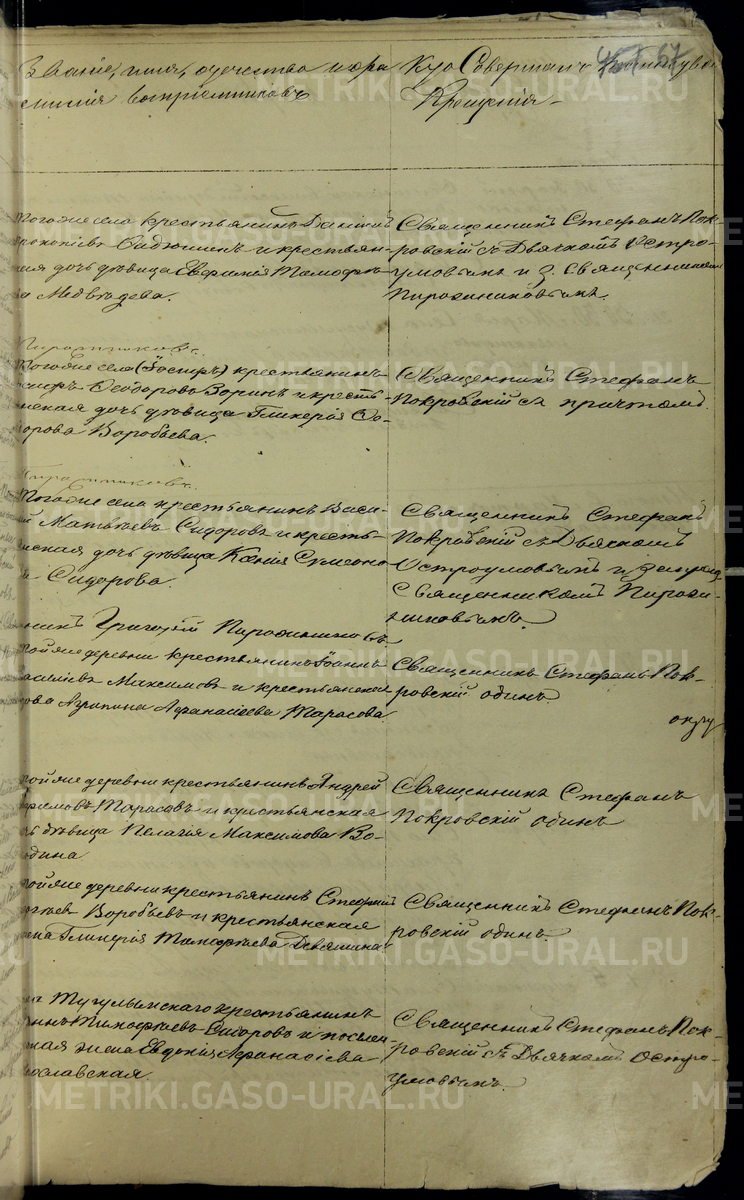 Звание, имя, отчество и фа-
милия восприемниковъ
Кто Совершалъ Таинство
Крещенія
67
тогоже села крестьянинъ Даніилъ
Прокопіевъ Сидюшкинъ и крестьян-
ская дочь дѣвица Евфимія Тимофѣ-
ва Медвѣдева.
Священникъ Стефанъ Пок-
ровскій съ Дьячкомъ Остро-
умовымъ и з. Священникомъ
Пирожниковымъ.
тогоже села (Іосифъ) крестьянинъ
Ѳеодоровъ Зоринъ и кресть-
янская дочь дѣвица Гликерія
Воробьева.
Священникъ Стефанъ
Покровскій съ причтомъ.
тогоже села крестьянинъ Васи-
лій Матвѣевъ Сидоровъ и кресть-
янская дочь дѣвица Ксенія Симеоно-
ва Сидорова.
Священникъ Стефанъ
Покровскій съ Дьячкомъ
Остроумовымъ и
Священникомъ Пирож-
никовымъ.
никъ Григорій Пирожниковъ
тойже деревни крестьянинъ Іоаннъ
Василіевъ Максимовъ и крестьянская
вдова Агрипина Афанасіева Тарасова
Священникъ Стефанъ Пок-
ровскій одинъ
тойже деревни крестьянинъ Андрей
Тарасовъ и крестьянская
дѣвица Пелагія Максимова Во-
лодина
Священникъ Стефанъ
Покровскій одинъ
тойже деревни крестьянинъ Стефанъ
Воробьевъ и крестьянская
жена Гликерія Тимофѣева Девяшина
Священникъ Стефанъ Пок-
ровскій одинъ.
Тугулымскаго крестьянинъ
Тимофѣевъ Сидоровъ и поселен-
ческая жена Евдокія Афанасіева
ославская.
Священникъ Стефанъ Пок-
ровскій съ Дьячкомъ Остро-
умовымъ.
METRIKI.GASO-URAL.RU